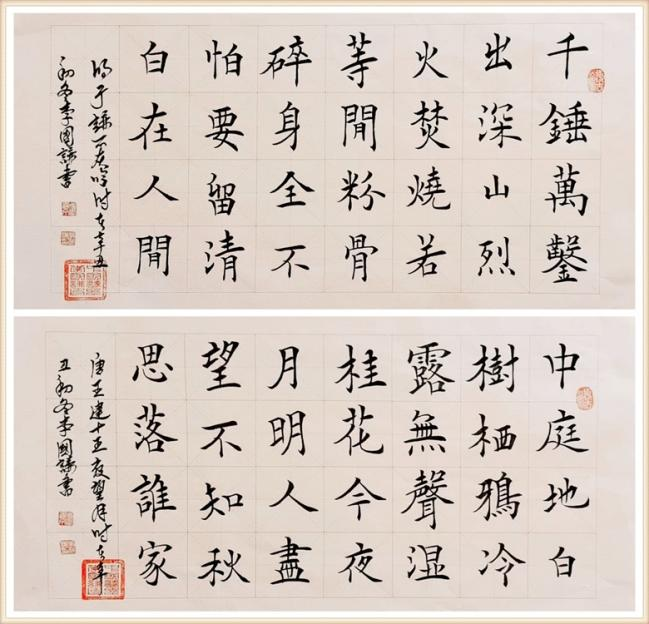 千錘萬鑿
出深山烈
火焚燒若
等閒粉骨
碎身全不
怕要留清
白在人閒
明于謙石灰吟时在辛丑
初冬李國書
中庭地白
樹栖鴉冷
露無聲湿
桂花今夜
月明人盡
望不知秋
思落誰家
唐王建十五夜望月时在辛
丑初冬李國書